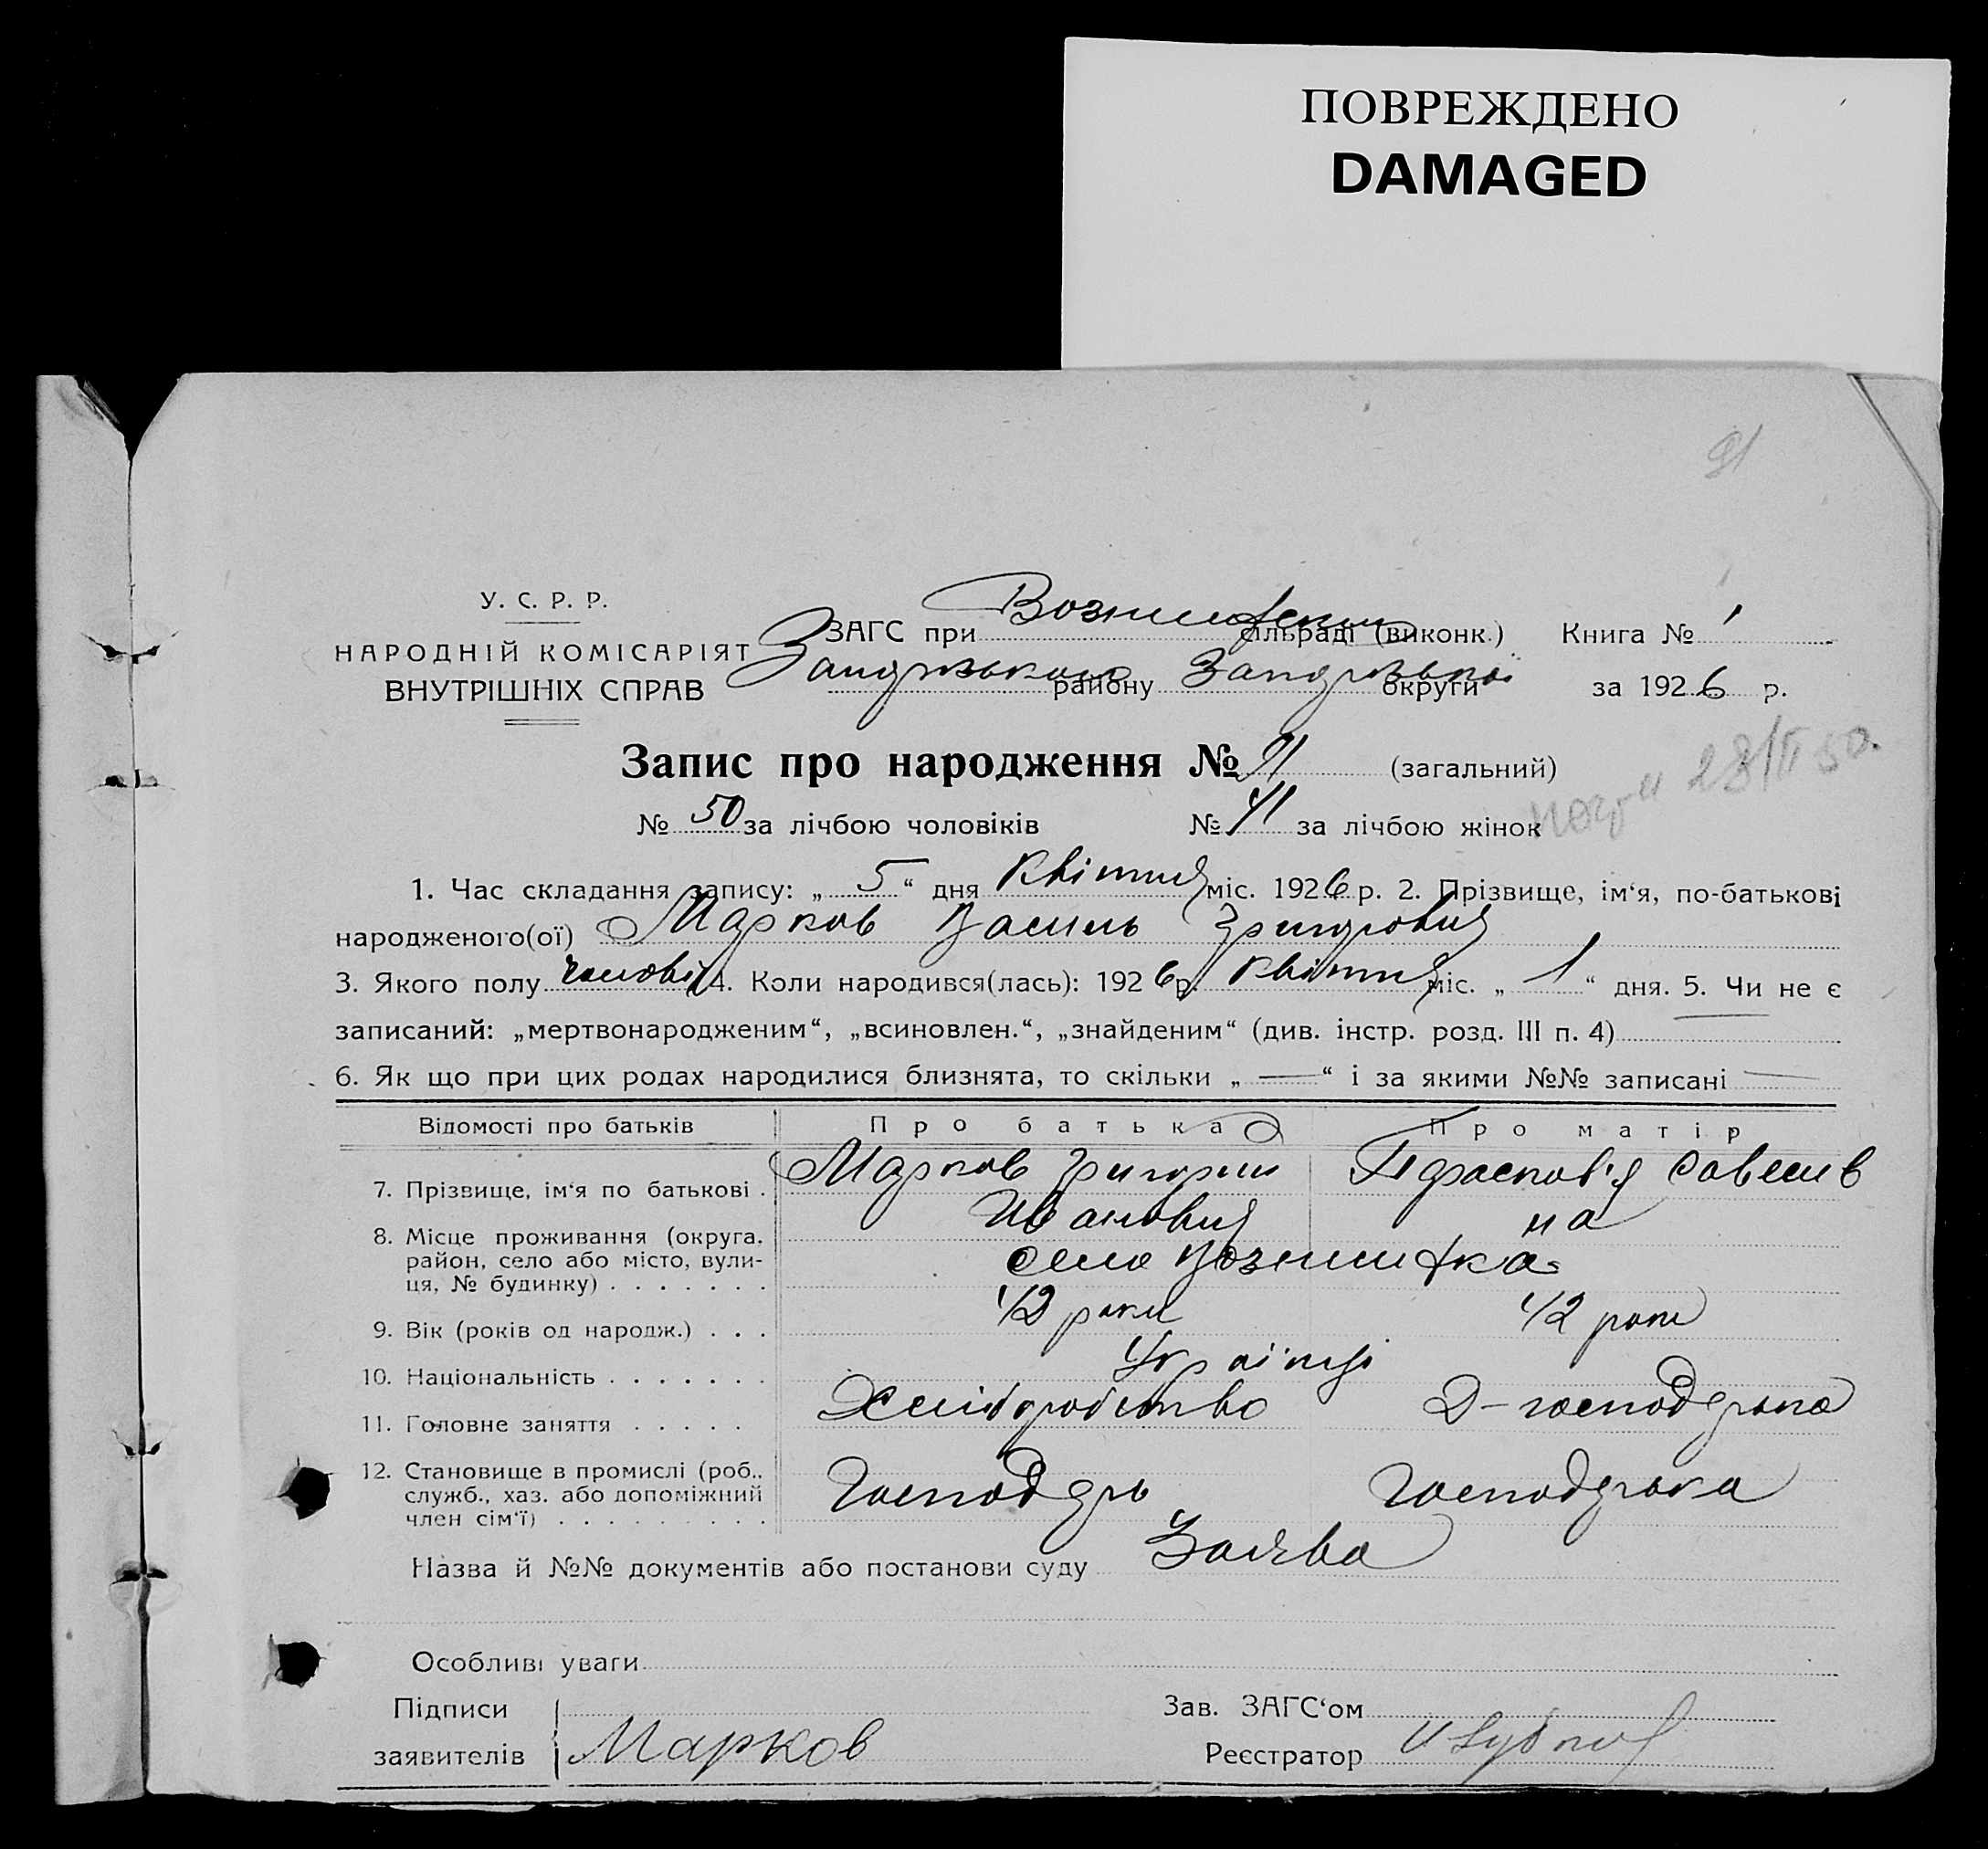 ПОВРЕЖДЕНО
DAMAGED
91
У. С. Р. Р.
НАРОДНІЙ КОМІСАРІЯТ
ВНУТРІШНІХ СПРАВ
ЗАГС при сільраді (виконк.) Книга № 1
району округи за 1926 р.
Запис про народження № 91 (загальний)
28/II 50.
№ 50 за лічбою чоловіків № 41 за лічбою жінок
1. Час складання запису: „ 5 “ дня Квітня міс. 1926 р. 2. Прізвище, ім‘я, по-батькові
народженого(ої) Марков Василь Григорович
3. Якого полу чоловіч 4. Коли народився(лась): 1926 р. Квітня міс. „ 1 “ дня. 5. Чи не є
записаний: „мертвонародженим“, „всиновлен.“, „знайденим“ (див. інстр. розд. III п. 4)
6. Як що при цих родах народилися близнята, то скільки „ — “ і за якими №№ записані —
Відомості про батьків Про батька Про матір
7. Прізвище, ім‘я по батькові . Марков Григорий Иванович Парасков'я Савелив на
8. Місце проживання (округа, район, село або місто, вулиця, № будинку) . . . . . . . село
9. Вік (років од народж.) . . . 42 роки 42 роки
10. Національність . . . . . . . Українці
11. Головне заняття . . . . . Хліборобство Д-господарка
12. Становище в промислі (роб., служб., хаз. або допоміжний член сім‘ї) . . . . . . . . . Господарь Господарка
Назва й №№ документів або постанови суду Заява
Особливі уваги
Підписи Зав. ЗАГС‘ом
заявителів Марков Реєстратор